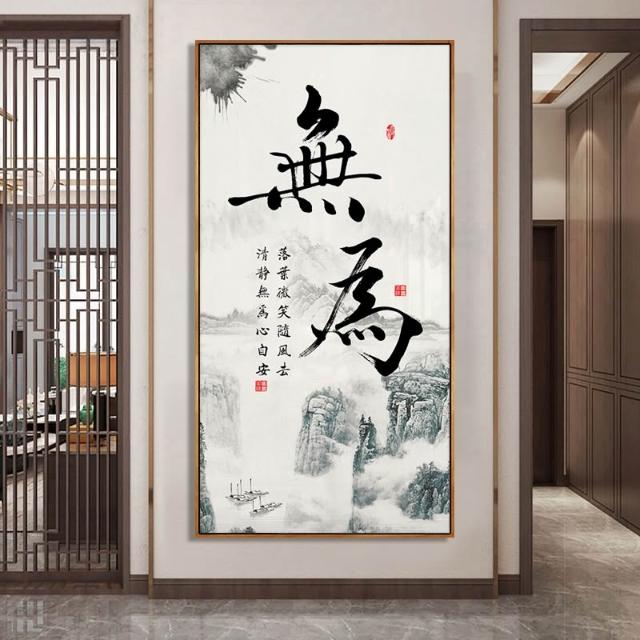 無為
落葉微笑隨風去
清静無為心自安